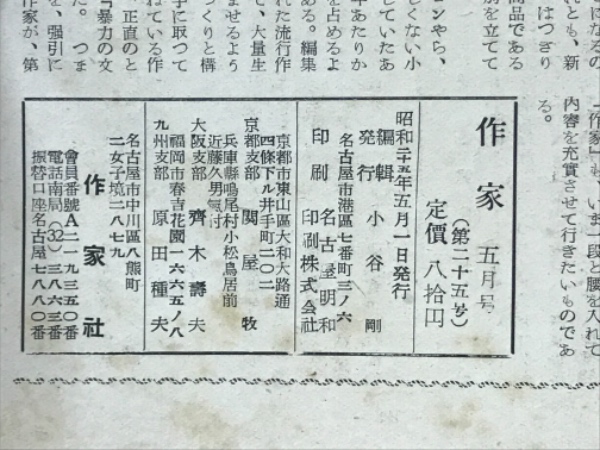 になるの
れとも、新
はつきり
商品である
別を立てて
ンやら、
しくない小
していたあ
年あたりか
を占めるよ
ある。編集
れた流行作
て、大量生
ませるよう
づくりと構
手に取つて
れている作
「暴力の文
「正直のと
た。つま
を、強引に
作家が、第
「作家」も、いま一段と腰を入れて
内容を充實させて行きたいものであ
る。
作家 五月号
(第二十五号)
定價 八拾円
昭和二十五年五月一日発行
編輯
発行 小谷剛
名古屋市港區七番町三ノ六
印刷 名古屋明和
印刷株式会社
京都市東山區大和大路通
四條下ル井手町二〇二
京都支部 関屋牧
兵庫縣鳴尾村小松鳥居前
近藤久男氣付
大阪支部 齊木壽夫
福岡市春吉花園一六六五ノ八
九州支部 原田種夫
名古屋市中川區八熊町
二女子境二八七九
作家社
會員番號A二一九三五〇番
電話南局(32)三八六三番
振替口座名古屋七八八〇番